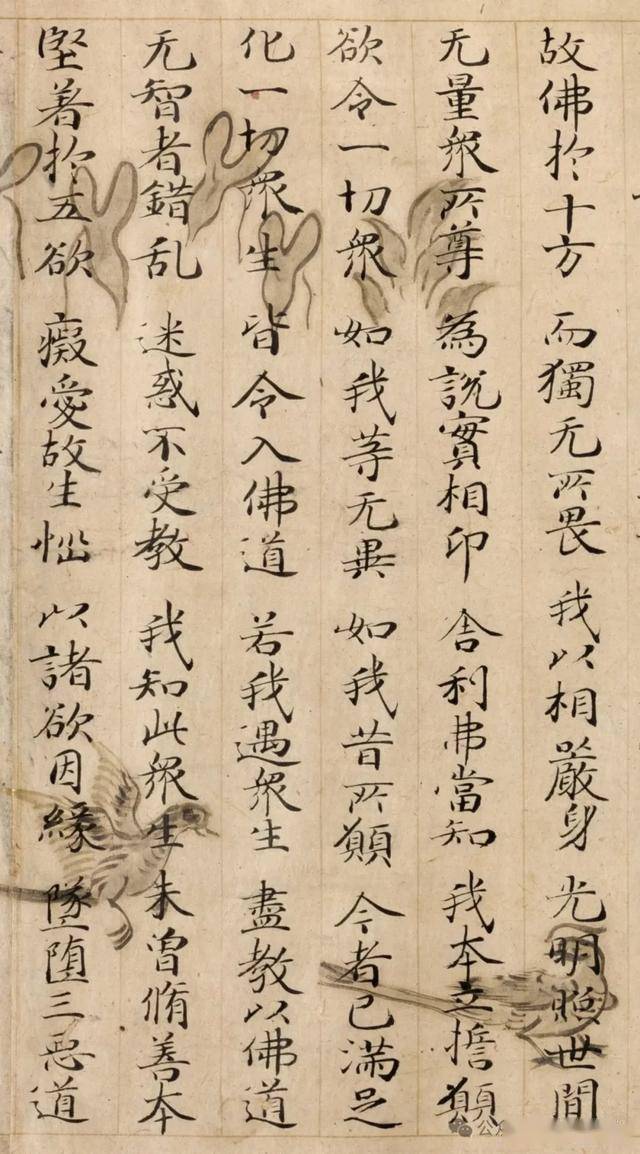 故佛於十方 而獨无所畏 我以相嚴身 光明照世間
无量衆所尊 為說實相印 舍利弗當知 我本立誓願
欲令一切衆 如我等无異 如我昔所願 今者已滿足
化一切衆生 皆令入佛道 若我遇衆生 盡教以佛道
无智者錯乱 迷惑不受教 我知此衆生 未曾脩善本
堅著於五欲 癡愛故生惱 以諸欲因緣 墜墮三惡道